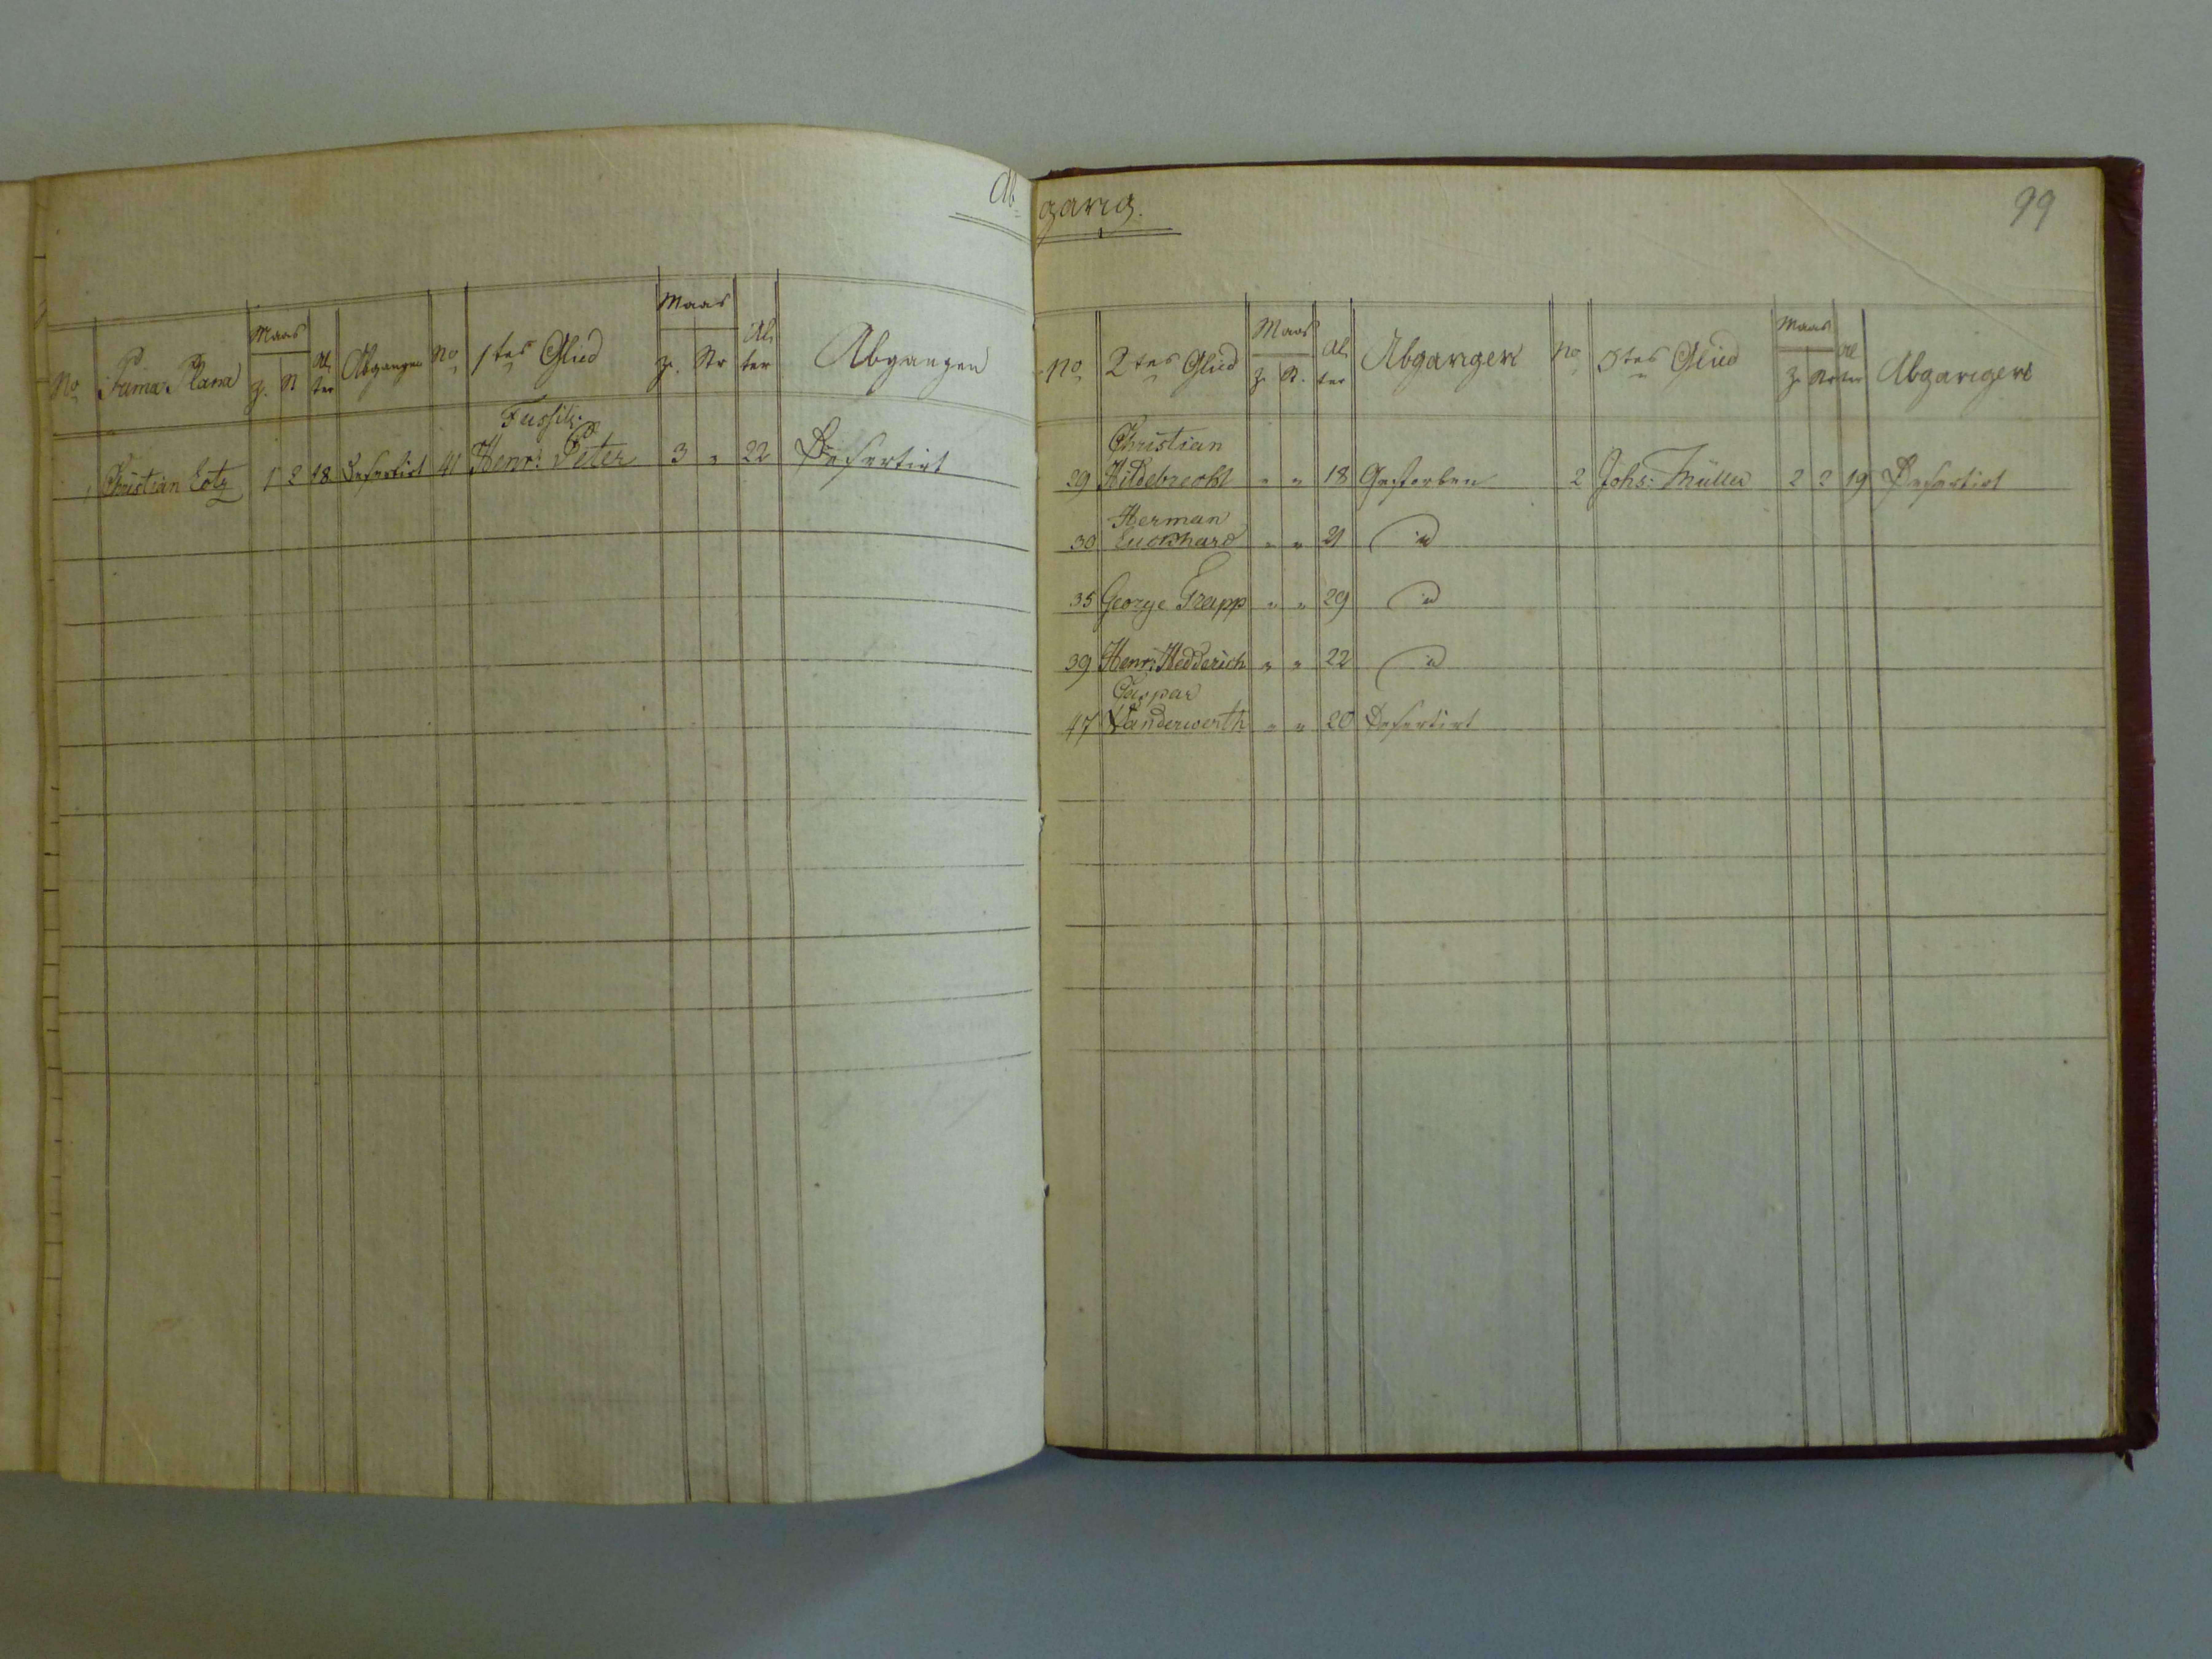 Abgang.
99
No Prima Plana Maas Z. St Alter Abgangen No 1tes Glied Maas Z. Str Alter Abgangen
1 Christian Lotz 1 2 18 Desertirt 41 Fussil: Henr: Peter 3 " 22 Desertirt
No 2tes Glied Maas Z. St. Alter Abgangen No 3tes Glied Maas Z. Str Alter Abgangen
Christian
29 Hildebrecht " " 18 Gestorben 2 Johs: Müller 2 2 19 Desertirt
Herman
30 Luckhard " " 21 id
35 George Trapp " " 29 id
39 Henr: Hedderich " " 22 id
Caspar
47 Landerwerth " " 20 Desertirt